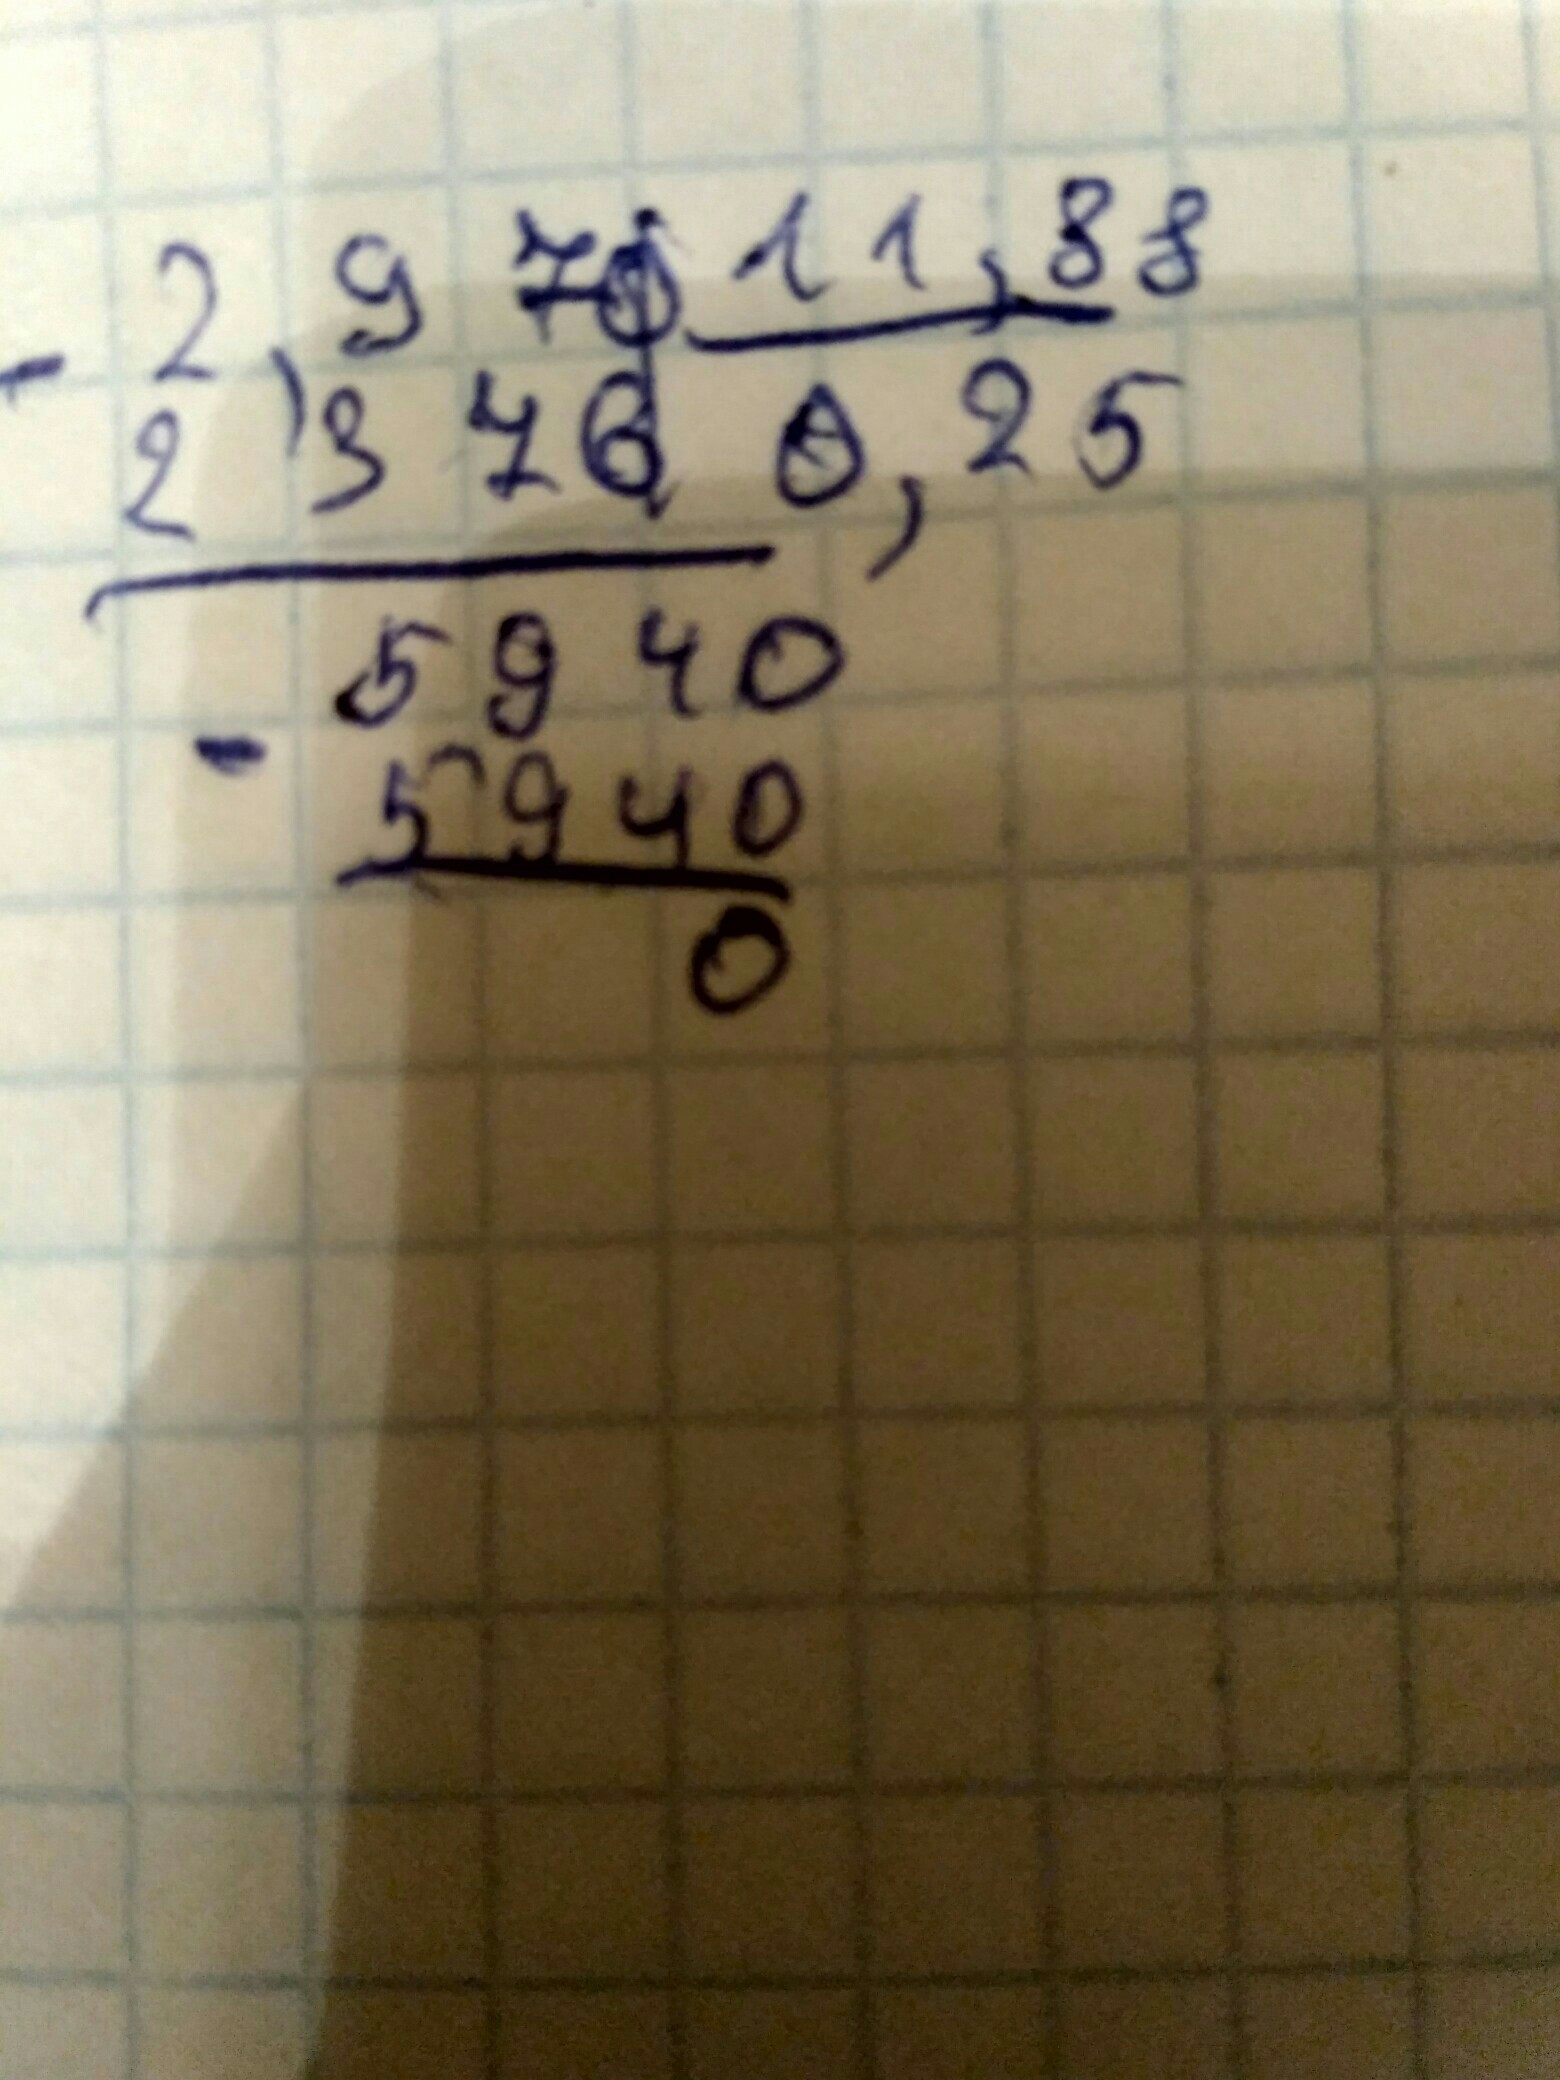 - 2,970 11,88
2,376 0,25
5940
- 5940
0